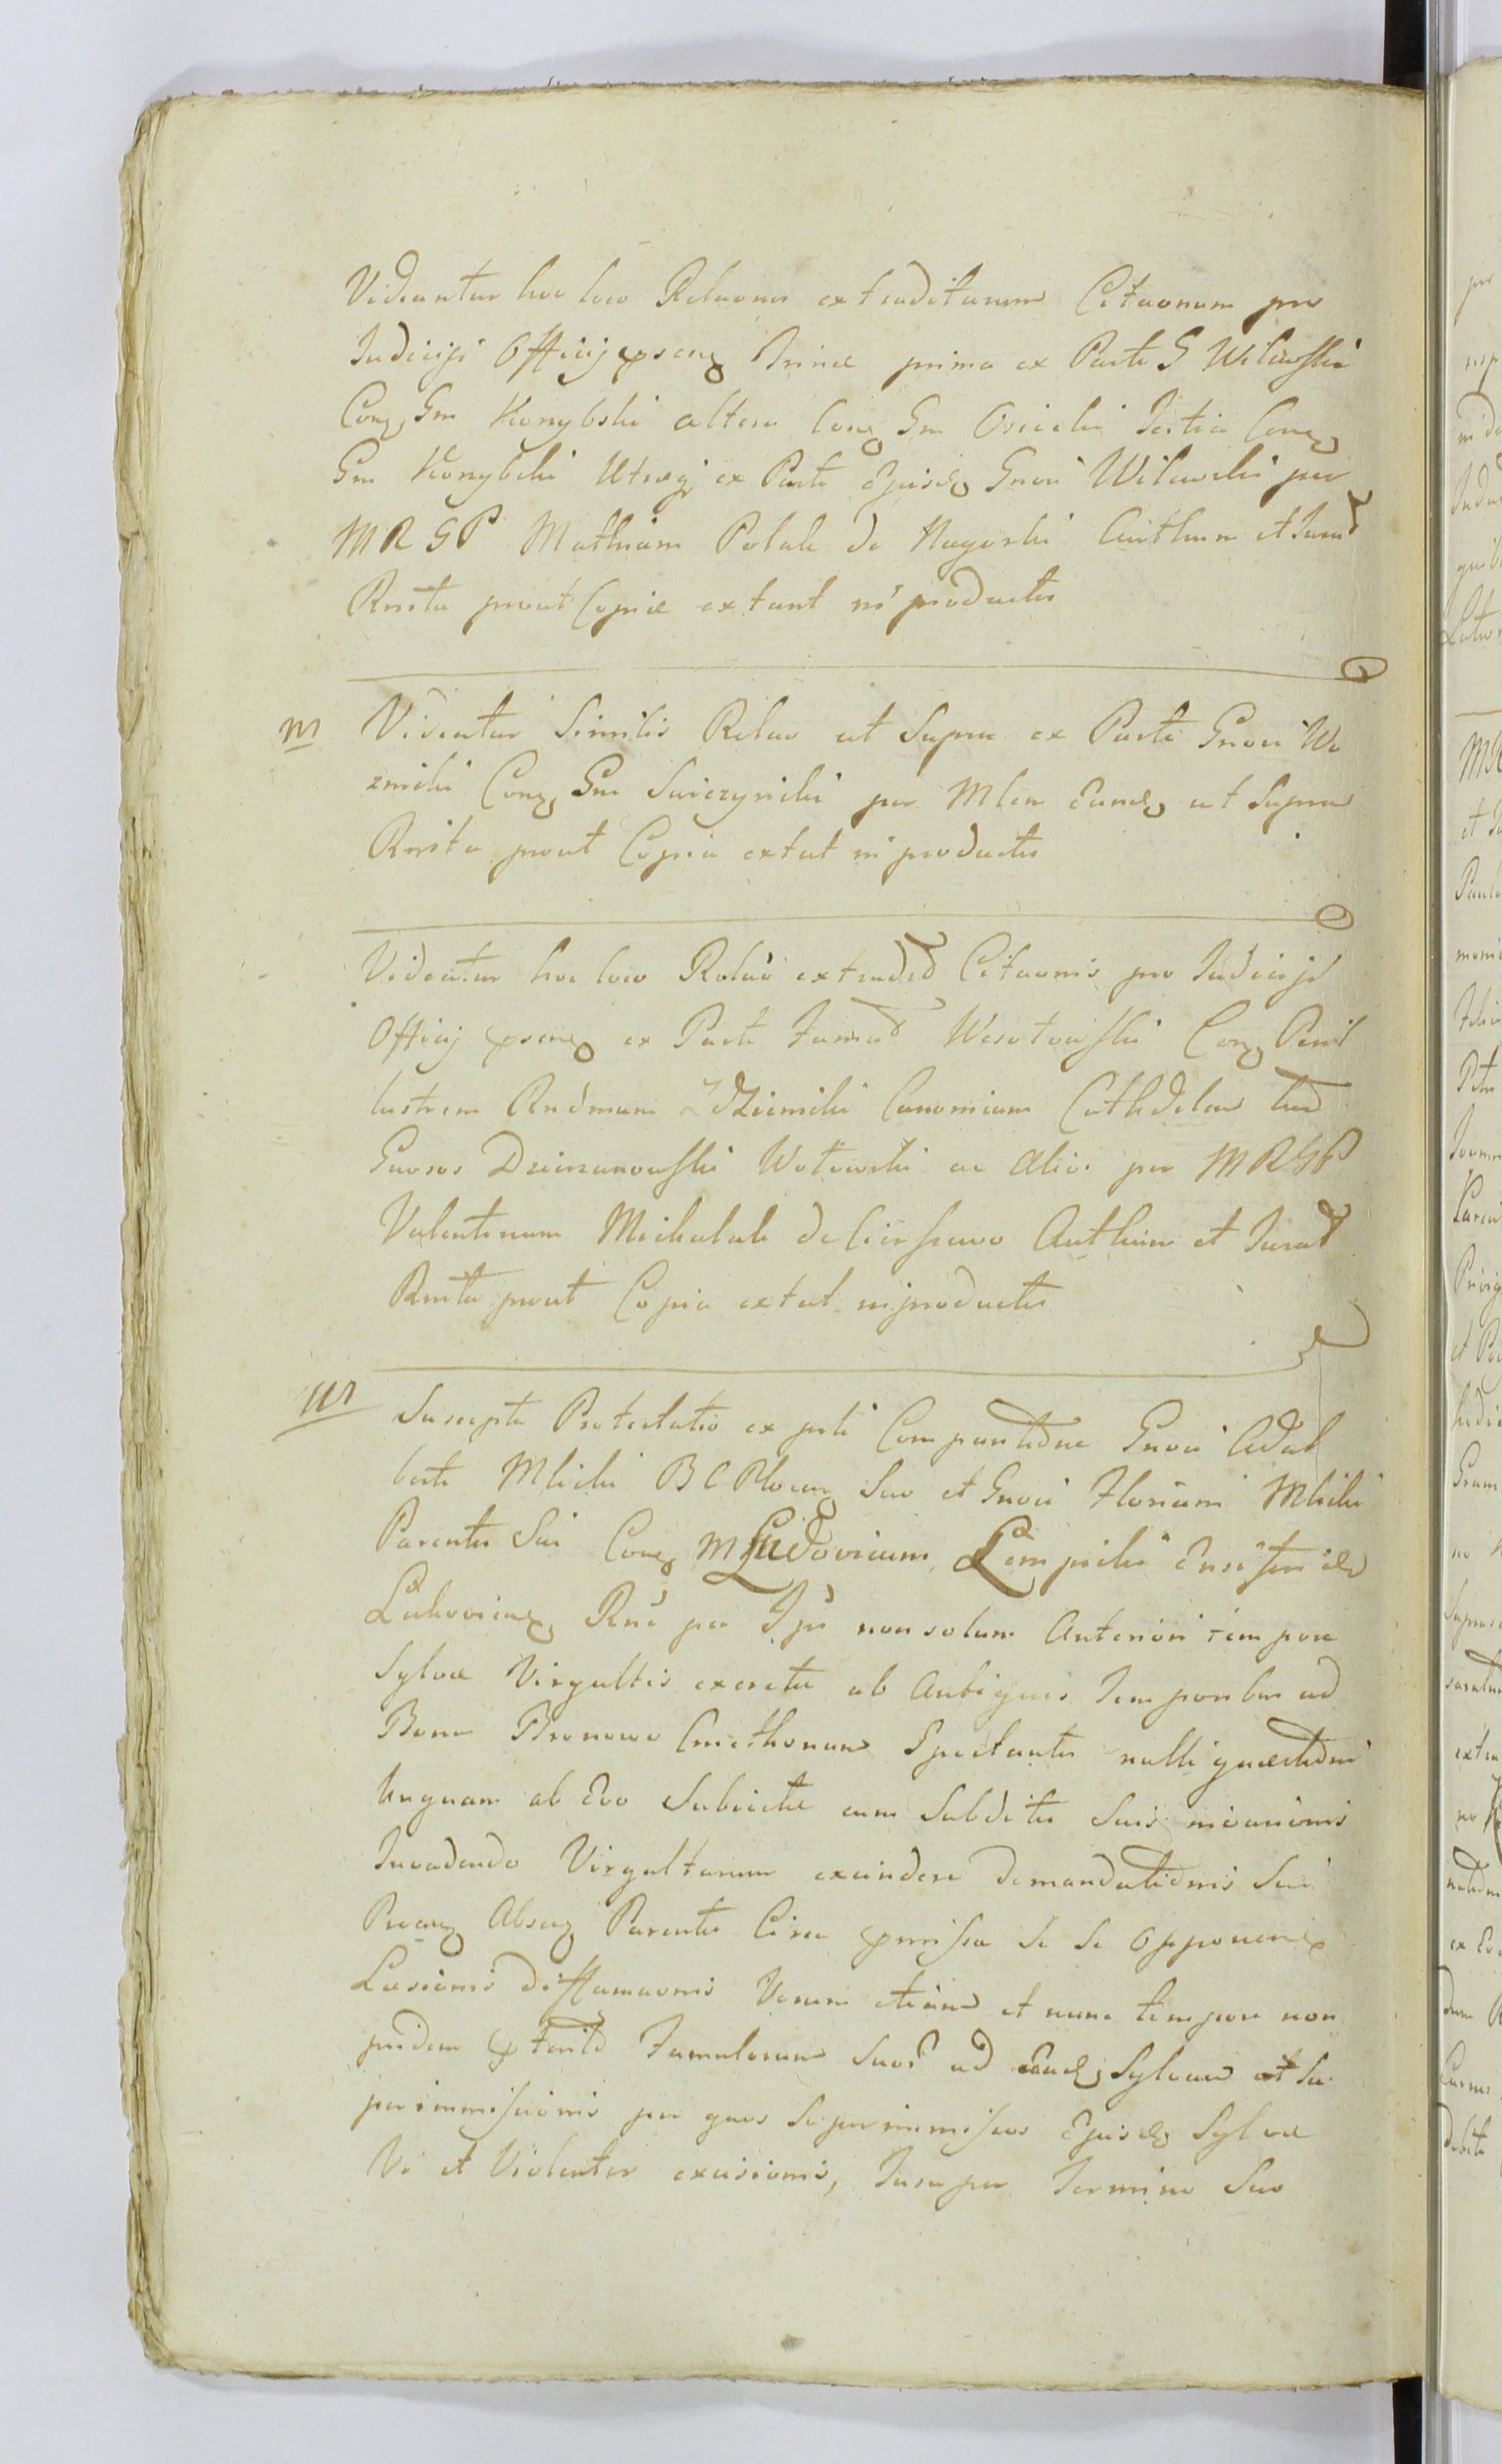 Videantur hoc loco Relaones extraditarum Citaonum pro
Judicijs Officij Trinae prima ex Parte G Wilewski
Conq Gm Konybski altera Conq Gm Osiecki Tertia Conq
Gm Konybski Utraq ex Parte Ejusdq Gnosi Wilewski per
MRGP Mathiam Polak de Nagorki Authum et Jurat
Rnita prout Copiae extant in productis
m Videatur Similis Relao ut Supra ex Parte Gnosi Wo
zniski Conq Gm Swiezynski per Mlem Eundq ut Supra
Rnita prout Copia extat in productis
Videatur hoc loco Relao extradit Citaonis pro Judicijs
Officij ex Parte Famat Wesołowski Conq Peril
lustrem Rndmum Zdziemski Canonicum Cathdlem
Gnosos Dzierzanowski Wotowski ac Alios per MRGP
Valentinum Michalak de Authum et Jurat
Rnita prout Copia extat in productis
m Suscepta Protestatio ex psli Compantidne Gnosi Adal
berti Mlicki BC Plocenq Suo et Gnosi Floriani Mlicki
Parentis Sui Conq M Ludovicum Lempicki Ensiferidq
Rne per Ipm non solum Anteriori tempore
Sylvae Virgultis excretae ab Antiquis Temporibus ad
Bona Bronowo Cmethonum Spectantis nulli quaestidni
Unquam ab Evo Subjectae cum Subditis Suis
Invadendo Virgultarum excindere demandatidnis Sui
Absenq Parentis Circa pmissa se se Opponenq
Laesionis diffamaonis Verum etiam et nunc tempore non
pridem Famulorum Suor ad Eandq Sylvam et Su
perimmissionis per quos Superimmissos Ejusdq Sylvae
Vi et Violenter excisionis, Insuper Termino Suo